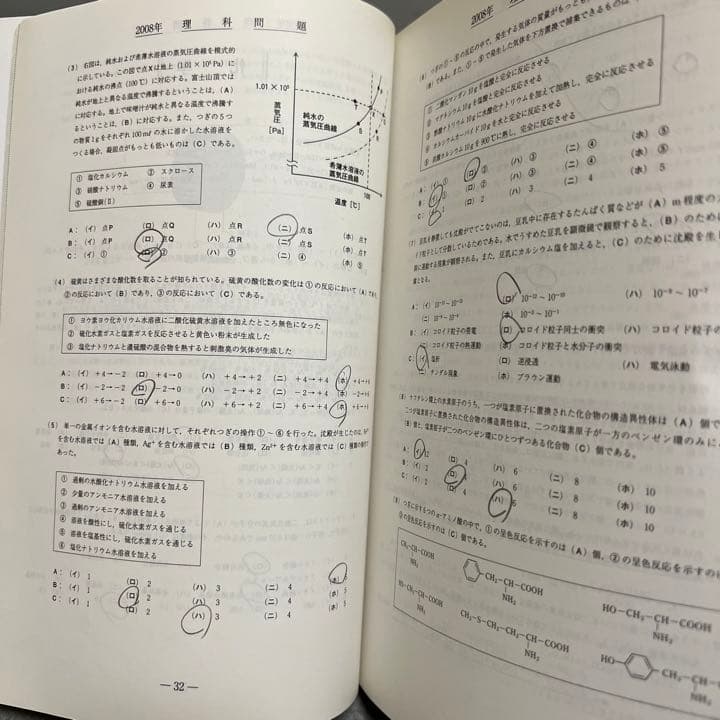 2008年 理科問題
(3) 右図は，純水および希薄水溶液の蒸気圧曲線を模式的
に示している。この図で点Xは地上 (1.01 × 10⁵ Pa) に
おける純水の沸点 (100℃) に対応する。富士山頂では
純水が地上と異なる温度で沸騰するということは，(A)
に対応する。地上で味噌汁が純水と異なる温度で沸騰す
るということは，(B) に対応する。また，つぎの5つ
の物質1gをそれぞれ100 mlの水に溶かした水溶液を
つくる場合，凝固点がもっとも低いものは (C) である。
① 塩化カルシウム ② スクロース
③ 硫酸ナトリウム ④ 尿素
⑤ 硫酸銅(II)
1.01 × 10⁵
蒸気圧
[Pa]
純水の
蒸気圧曲線
希薄水溶液の
蒸気圧曲線
100
温度 [℃]
A：(イ) 点P (ロ) 点Q (ハ) 点R (ニ) 点S (ホ) 点T
B：(イ) 点P (ロ) 点Q (ハ) 点R (ニ) 点S (ホ) 点T
C：(イ) ① (ロ) ② (ハ) ③ (ニ) ④ (ホ) ⑤
(4) 硫黄はさまざまな酸化数を取ることが知られている。硫黄の酸化数の変化は①の反応において (A) であり，
②の反応において (B) であり，③の反応において (C) である。
① ヨウ素ヨウ化カリウム水溶液に二酸化硫黄水溶液を加えたところ無色になった
② 硫化水素ガスと塩素ガスを反応させると黄色い粉末が生成した
③ 塩化ナトリウムと濃硫酸の混合物を熱すると刺激臭の気体が生成した
A：(イ) +4→−2 (ロ) +4→0 (ハ) +4→+2 (ニ) +4→+4 (ホ) +4→+6
B：(イ) −2→−2 (ロ) −2→0 (ハ) −2→+2 (ニ) −2→+4
C：(イ) +6→−2 (ロ) +6→0 (ハ) +6→+2 (ニ) +6→+4 (ホ) +6→+6
(5) 単一の金属イオンを含む水溶液に対して，それぞれつぎの操作①〜⑥を行った。沈殿が生じたのは，
を含む水溶液では (A) 種類，Ag⁺ を含む水溶液では (B) 種類，Zn²⁺ を含む水溶液では (C) 種類の操作で
あった。
① 過剰の水酸化ナトリウム水溶液を加える
② 少量のアンモニア水溶液を加える
③ 過剰のアンモニア水溶液を加える
④ 溶液を酸性にし，硫化水素ガスを通じる
⑤ 溶液を塩基性にし，硫化水素ガスを通じる
⑥ 塩化ナトリウム水溶液を加える
A：(イ) 1 (ロ) 2 (ハ) 3 (ニ) 4 (ホ) 5
B：(イ) 1 (ロ) 2 (ハ) 3 (ニ) 4 (ホ) 5
C：(イ) 1 (ロ) 2 (ハ) 3 (ニ) 4 (ホ) 5
— 32 —
2008年
(6) つぎの①〜⑤の反応の中で，発生する気体の質量がもっとも
(B) である。また，①〜⑤で発生した気体を下方置換で捕集できるものは
① 二酸化マンガン10gを塩酸と完全に反応させる
② マグネシウム10gを塩酸と完全に反応させる
③ 酢酸ナトリウム10gに水酸化ナトリウムを加えて加熱し，完全に反応させる
④ カルシウムカーバイド10gを水と完全に反応させる
⑤ 炭酸カルシウム10gを900℃で熱し，完全に反応させる
A：(イ) ① (ロ) ② (ハ) ③ (ニ) ④ (ホ) ⑤
B：(イ) ① (ロ) ② (ハ) ③ (ニ) ④ (ホ) ⑤
C：(イ) 1 (ロ) 2 (ハ) 3 (ニ) 4 (ホ) 5
(7) 豆乳を静置しても沈殿がでてこないのは，豆乳中に存在するたんぱく質などが (A) m程度の
子として分散しているのためである。水でうすめた豆乳を顕微鏡で観察すると，(B) のために
則に運動する現象が観察される。また，豆乳にカルシウム塩を加えると，(C) のために沈殿を生
(ハ) 10⁻⁹ 〜 10⁻⁷
B：(イ) コロイド粒子の帯電 (ロ) コロイド粒子同士の衝突 (ハ) コロイド粒子
(ニ) コロイド粒子の熱運動 (ホ) コロイド粒子と水分子の衝突
C：(イ) 塩析 (ロ) 逆浸透 (ハ) 電気泳動
(ニ) チンダル現象 (ホ) ブラウン運動
(8) ナフタレン環上の水素原子のうち，一つが塩素原子に置換された化合物の構造異性体は (A) 個で
つが塩素原子に置換された化合物の構造異性体は，二つの塩素原子が一方のベンゼン環のみに
(B) 個，塩素原子が二つのベンゼン環にひとつずつある化合物 (C) 個である。
A：(イ) 2 (ロ) 4 (ハ) 6 (ニ) 8 (ホ) 10
B：(イ) 2 (ロ) 4 (ハ) 6 (ニ) 8 (ホ) 10
C：(イ) 2 (ロ) 4 (ハ) 6 (ニ) 8 (ホ) 10
(9) つぎに示す6つのα-アミノ酸の中で，①の呈色反応を示すのは (A) 個，②の呈色反応を示すのは
③の呈色反応を示すのは (C) 個である。
CH₃−CH−COOH
NH₂
CH₂−CH−COOH
NH₂
HO−CH₂−CH−COOH
NH₂
HS−CH₂−CH−COOH
NH₂
CH₃−S−CH₂−CH₂−CH−COOH
NH₂
HO
CH₂−CH
NH₂